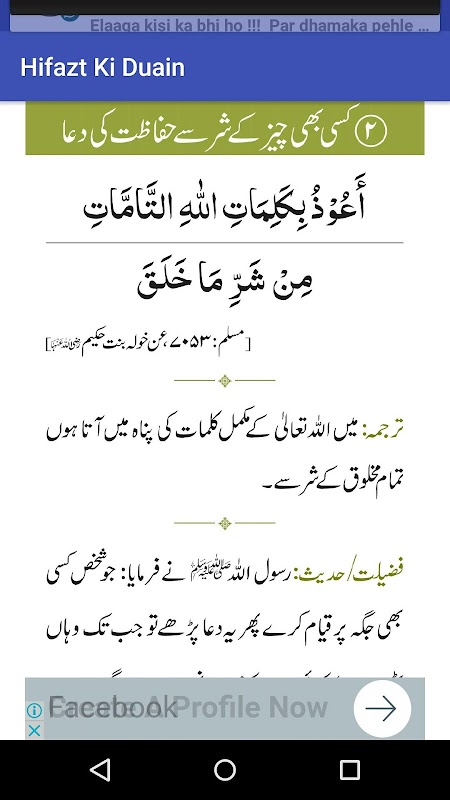 Elaaga kisi ka bhi ho !!! Par dhamaka pehle ...
Hifazt Ki Duain
۲ کسی بھی چیز کے شر سے حفاظت کی دعا
أَعُوْذُ بِكَلِمَاتِ اللهِ التَّامَّاتِ
مِنْ شَرِّ مَا خَلَقَ
[مسلم: ۷۰۵۳، عن خولہ بنت حکیم رضی اللہ عنہا]
ترجمہ: میں اللہ تعالیٰ کے مکمل کلمات کی پناہ میں آتا ہوں
تمام مخلوق کے شر سے۔
فضیلت/حدیث: رسول اللہ ﷺ نے فرمایا: جو شخص کسی
بھی جگہ پر قیام کرے پھر یہ دعا پڑھے تو جب تک وہاں
Facebook
Create A Profile Now